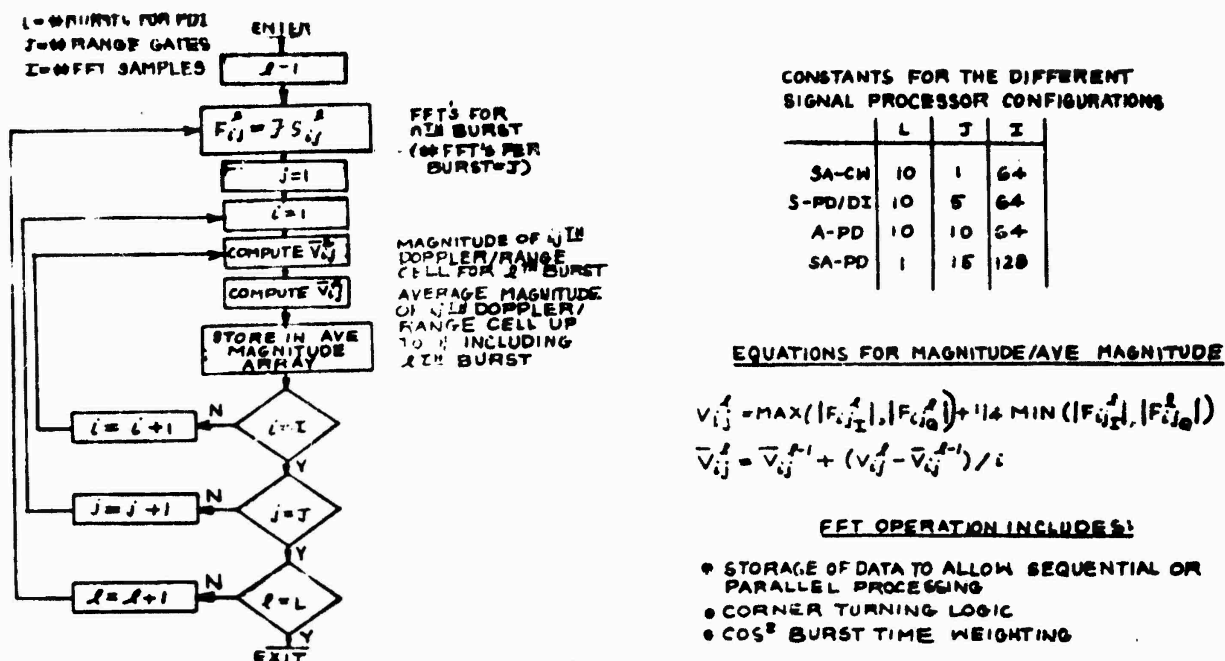 J=# RANGE GATES
I=# FFT SAMPLES
ENTER
F_ij^ℓ = ℱ S_ij^ℓ
FFT'S FOR
BURST
(# FFT'S PER
BURST=J)
j=1
i=1
COMPUTE
MAGNITUDE OF ijTH
DOPPLER/RANGE
CELL FOR ℓTH BURST
COMPUTE V̄_ij^ℓ
AVERAGE MAGNITUDE
OF ijTH DOPPLER/
RANGE CELL UP
TO INCLUDING
ℓTH BURST
STORE IN AVE
MAGNITUDE
ARRAY
i=I
N
i = i+1
Y
j=J
N
j = j+1
Y
ℓ=L
N
ℓ = ℓ+1
Y
EXIT
CONSTANTS FOR THE DIFFERENT
SIGNAL PROCESSOR CONFIGURATIONS
L J I
SA-CW 10 1 64
S-PD/DI 10 5 64
A-PD 10 10 64
SA-PD 1 15 128
EQUATIONS FOR MAGNITUDE/AVE MAGNITUDE
V_ij^ℓ = MAX(|F_ij_I^ℓ|,|F_ij_Q^ℓ|)+1/4 MIN(|F_ij_I^ℓ|,|F_ij_Q^ℓ|)
V̄_ij^ℓ = V̄_ij^ℓ-1 + (V_ij^ℓ - V̄_ij^ℓ-1)/i
FFT OPERATION INCLUDES:
• STORAGE OF DATA TO ALLOW SEQUENTIAL OR
PARALLEL PROCESSING
• CORNER TURNING LOGIC
• COS² BURST TIME WEIGHTING